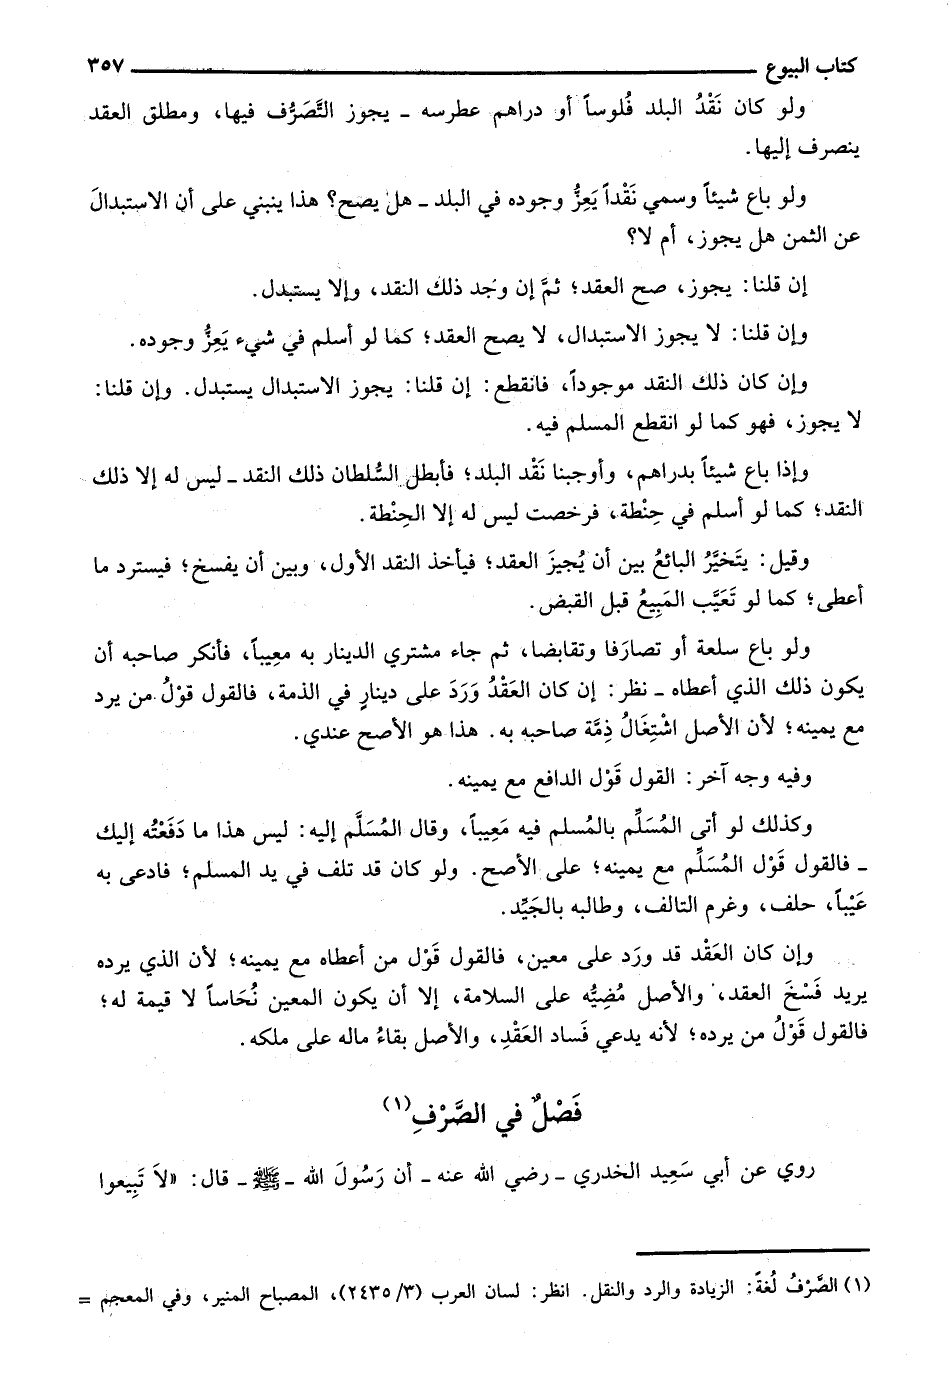 كتاب البيوع ٣٥٧
ولو كان نَقْدُ البلد فُلوساً أو دراهم عطرسه ـ يجوز التَّصَرُّف فيها، ومطلق العقد
ينصرف إليها.
ولو باع شيئاً وسمي نَقْداً يَعِزُّ وجوده في البلد ـ هل يصح؟ هذا ينبني على أن الاستبدالَ
عن الثمن هل يجوز، أم لا؟
إن قلنا: يجوز، صح العقد؛ ثمَّ إن وجَد ذلك النقد، وإلا يستبدل.
وإن قلنا: لا يجوز الاستبدال، لا يصح العقد؛ كما لو أسلم في شيء يَعِزُّ وجوده.
وإن كان ذلك النقد موجوداً، فانقطع: إن قلنا: يجوز الاستبدال يستبدل. وإن قلنا:
لا يجوز، فهو كما لو انقطع المسلم فيه.
وإذا باع شيئاً بدراهم، وأوجبنا نَقْد البلد؛ فأبطل السُّلطان ذلك النقد ـ ليس له إلا ذلك
النقد؛ كما لو أسلم في حِنْطة، فرخصت ليس له إلا الحِنْطة.
وقيل: يتَخيَّرُ البائعُ بين أن يُجيزَ العقد؛ فيأخذ النقد الأول، وبين أن يفسخ؛ فيسترد ما
أعطى؛ كما لو تَعَيَّب المَبِيعُ قبل القبض.
ولو باع سلعة أو تصارَفا وتقابضا، ثم جاء مشتري الدينار به معِيباً، فأنكر صاحبه أن
يكون ذلك الذي أعطاه ـ نظر: إن كان العَقْدُ وَرَدَ على دينارٍ في الذمة، فالقول قوْلُ من يرد
مع يمينه؛ لأن الأصل اشْتِغَالُ ذِمَّة صاحبه به. هذا هو الأصح عندي.
وفيه وجه آخر: القول قَوْل الدافع مع يمينه.
وكذلك لو أتى المُسَلِّم بالمُسلم فيه مَعِيباً، وقال المُسَلَّم إليه: ليس هذا ما دَفَعْتُه إليك
ـ فالقول قَوْل المُسَلِّم مع يمينه؛ على الأصح. ولو كان قد تلف في يد المسلم؛ فادعى به
عَيْباً، حلف، وغرم التالف، وطالبه بالجَيِّد.
وإن كان العَقْد قد ورَد على معين، فالقول قَوْل من أعطاه مع يمينه؛ لأن الذي يرده
يريد فَسْخَ العقد، والأصل مُضِيُّه على السلامة، إلا أن يكون المعين نُحَاساً لا قيمة له؛
فالقول قَوْلُ من يرده؛ لأنه يدعي فَساد العَقْدِ، والأصل بقاءُ ماله على ملكه.
فَصْلٌ في الصَّرْفِ(١)
روي عن أبي سَعِيد الخدري ـ رضي الله عنه ـ أن رَسُولَ الله ـ ﷺ ـ قال: «لاَ تَبِيعوا
(١) الصَّرْفُ لُغةً: الزيادة والرد والنقل. انظر: لسان العرب (٢٤٣٥/٣)، المصباح المنير، وفي المعجم =